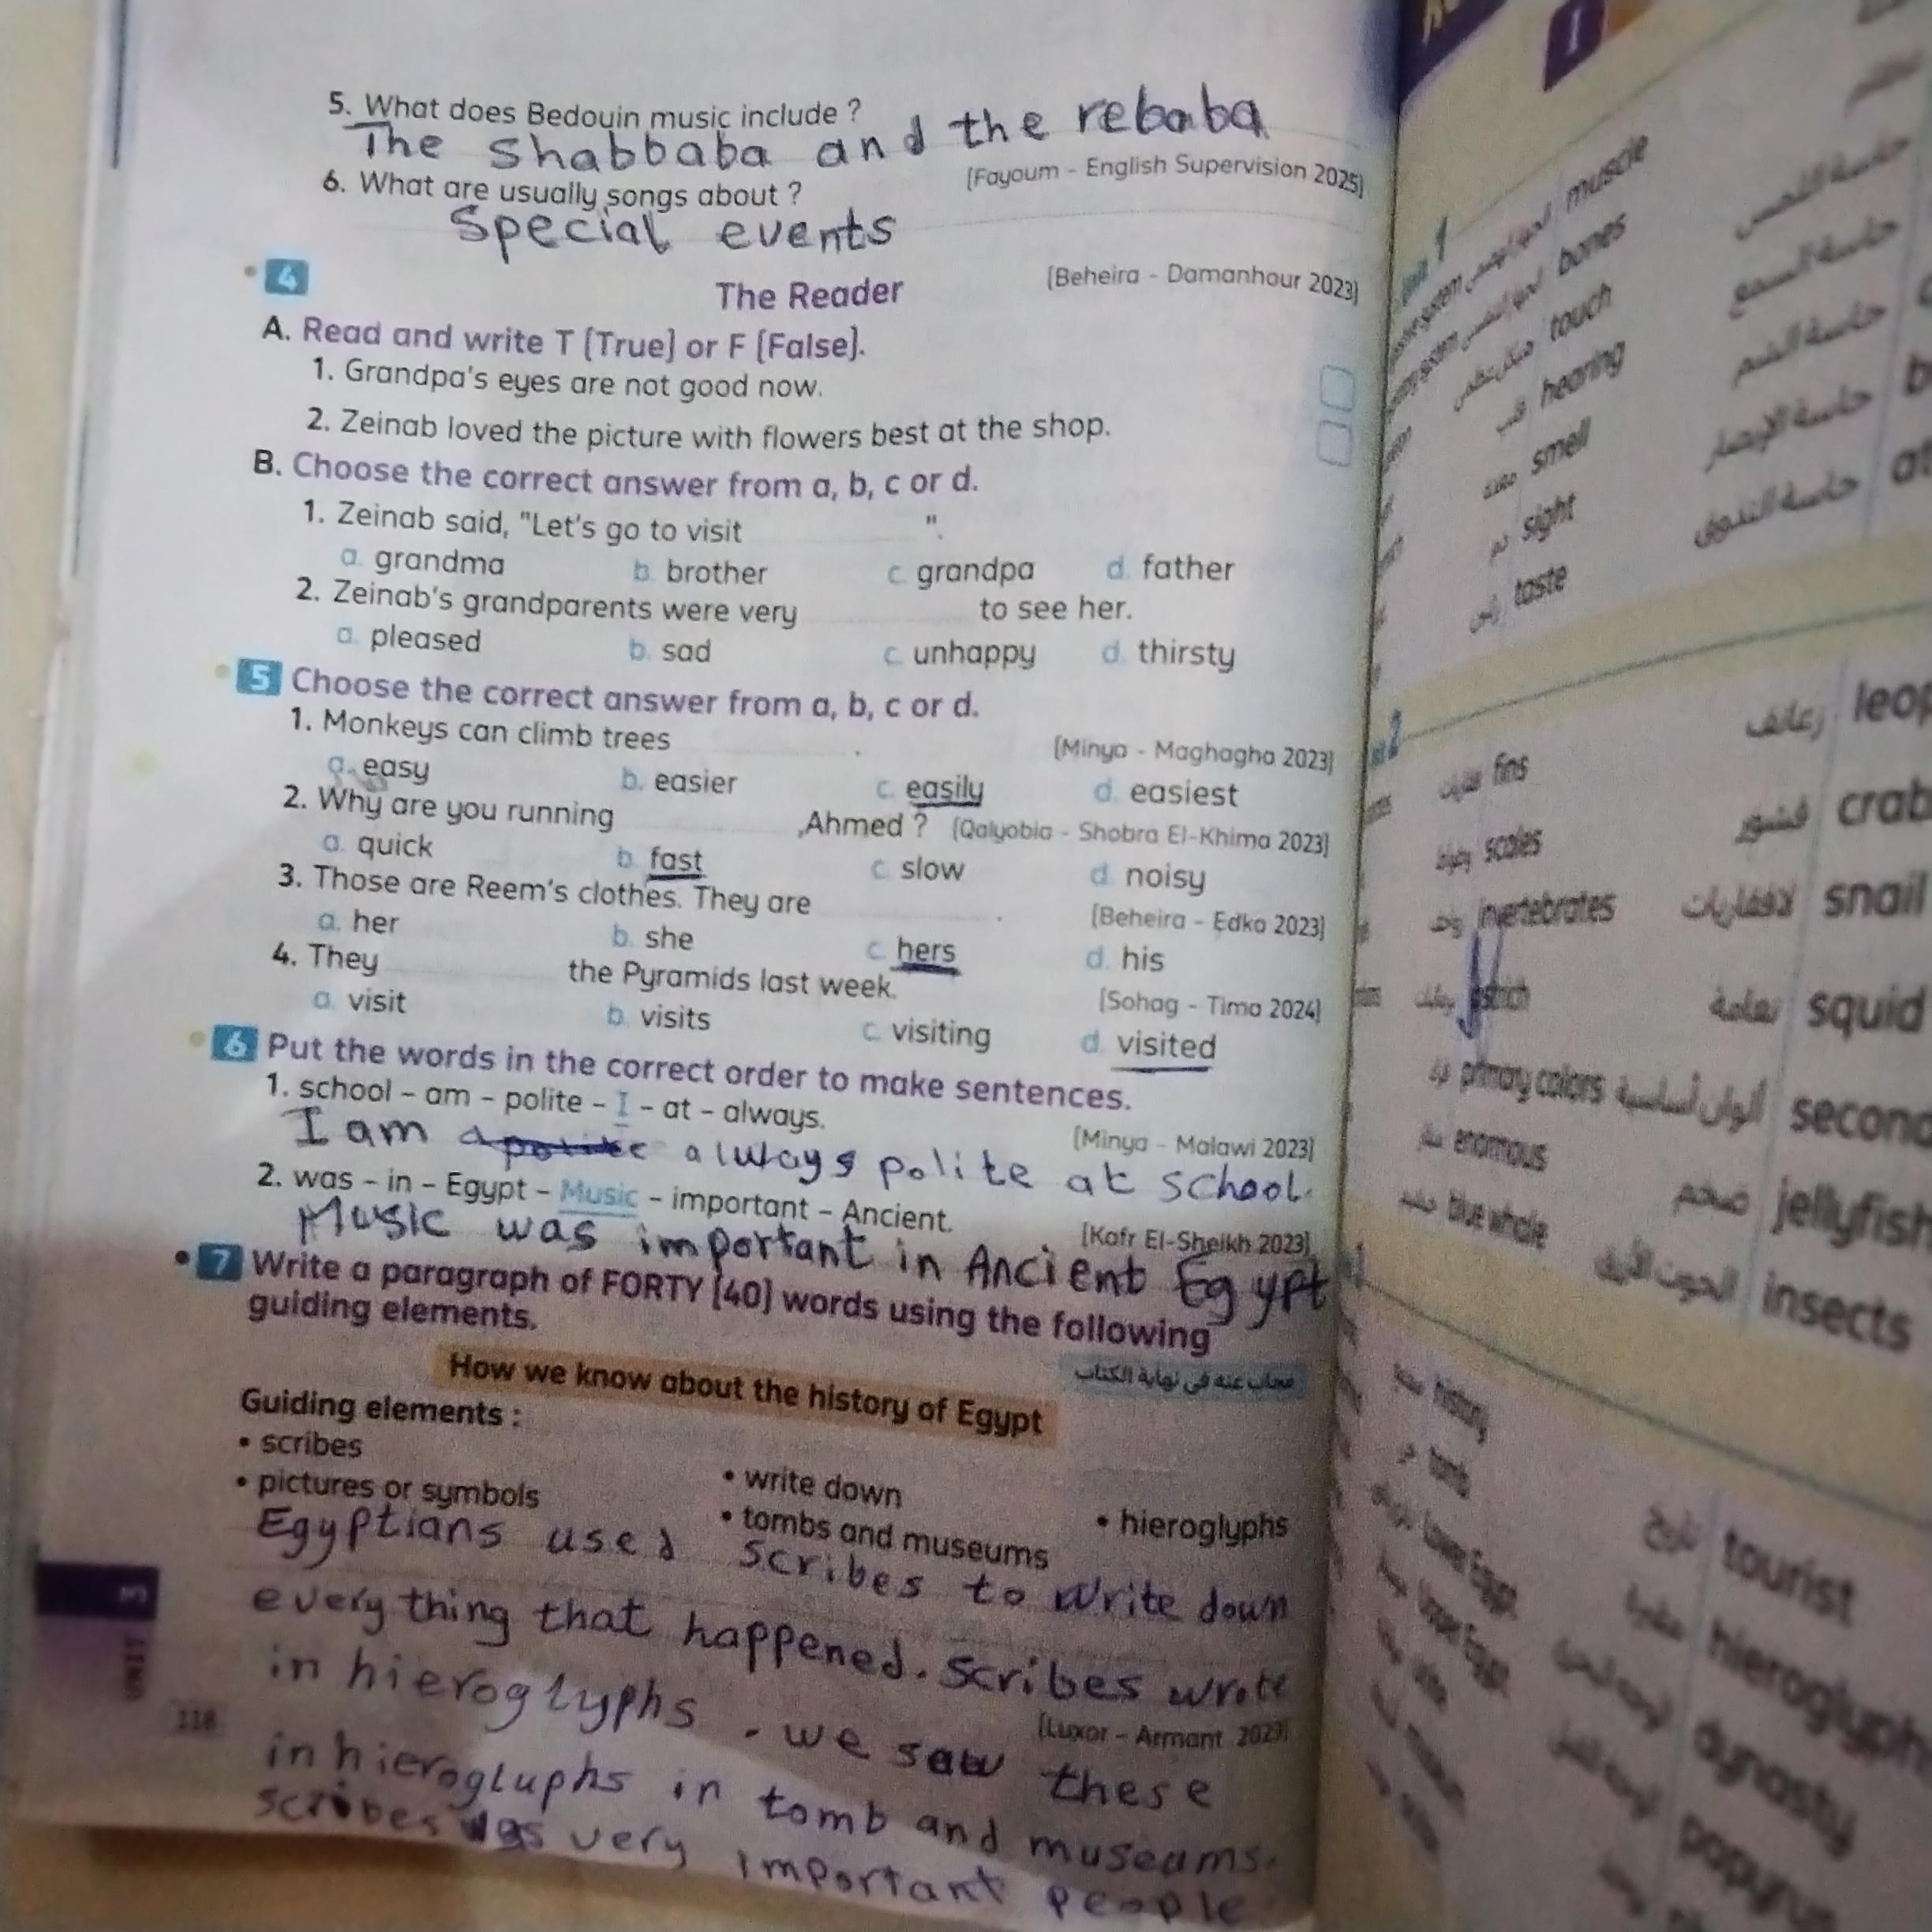 5. What does Bedouin music include ?
The shabbaba and the rebaba
[Fayoum - English Supervision 2025]
6. What are usually songs about ?
Special events
4
The Reader
[Beheira - Damanhour 2023]
A. Read and write T [True] or F [False].
1. Grandpa's eyes are not good now.
2. Zeinab loved the picture with flowers best at the shop.
B. Choose the correct answer from a, b, c or d.
1. Zeinab said, "Let's go to visit ".
a. grandma b. brother c. grandpa d. father
2. Zeinab's grandparents were very to see her.
a. pleased b. sad c. unhappy d. thirsty
5 Choose the correct answer from a, b, c or d.
1. Monkeys can climb trees .
[Minya - Maghagha 2023]
a. easy b. easier c. easily d. easiest
2. Why are you running ,Ahmed ? [Qalyobia - Shobra El-Khima 2023]
a. quick b. fast c. slow d. noisy
3. Those are Reem's clothes. They are .
[Beheira - Edko 2023]
a. her b. she c. hers d. his
4. They the Pyramids last week.
[Sohag - Tima 2024]
a. visit b. visits c. visiting d. visited
6 Put the words in the correct order to make sentences.
1. school - am - polite - I - at - always.
[Minya - Malawi 2023]
I am always polite at school.
2. was - in - Egypt - Music - important - Ancient.
[Kafr El-Sheikh 2023]
Music was important in Ancient Egypt
7 Write a paragraph of FORTY [40] words using the following
guiding elements.
مجاب عنه في نهاية الكتاب
How we know about the history of Egypt
Guiding elements :
• scribes • write down • hieroglyphs
• pictures or symbols • tombs and museums
Egyptians used scribes to write down
every thing that happened. scribes wrote
in hieroglyphs . we saw these
[Luxor - Armant 2023]
in hierogluphs in tomb and museums.
scribes was very important people
UNIT 3
118
1
muscle
bones
touch حاسة اللمس
hearing حاسة السمع
smell حاسة الشم
sight حاسة الإبصار
taste حاسة التذوق
2
fins زعانف
scales قشور crab
invertebrates لافقاريات snail
ostrich نعامة squid
primary colors ألوان أساسية
enormous ضخم jellyfish
blue whale الحوت الأزرق insects
history تاريخ tourist
tomb مقبرة
Lower Egypt
Upper Egypt dynasty